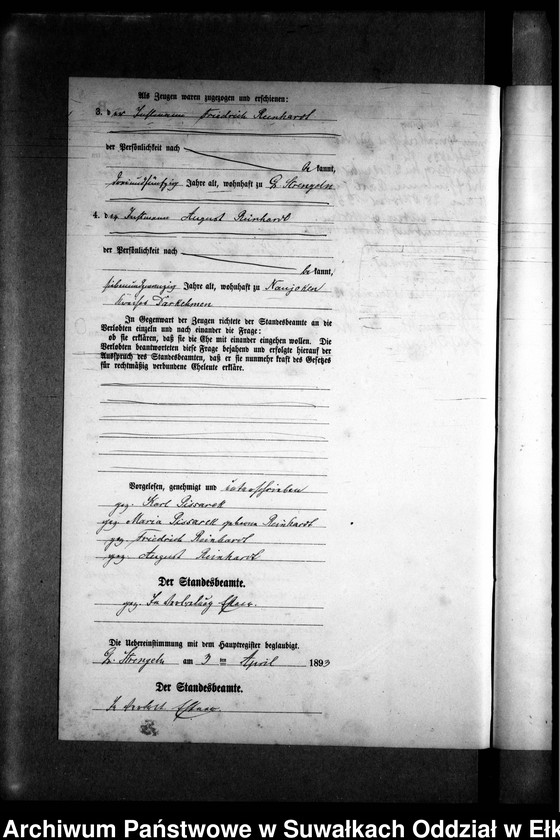 Als Zeugen waren zugezogen und erschienen:
3. der Instmann Friedrich Reinhardt
der Persönlichkeit nach
be kannt,
dreiundfünfzig Jahre alt, wohnhaft zu Gr. Strengeln
4. der Instmann August Reinhardt
der Persönlichkeit nach
be kannt,
siebenundzwanzig Jahre alt, wohnhaft zu Naujoken
Kreises Darkehmen
In Gegenwart der Zeugen richtete der Standesbeamte an die
Verlobten einzeln und nach einander die Frage:
ob sie erklären, daß sie die Ehe mit einander eingehen wollen. Die
Verlobten beantworteten diese Frage bejahend und erfolgte hierauf der
Ausspruch des Standesbeamten, daß er sie nunmehr kraft des Gesetzes
für rechtmäßig verbundene Eheleute erkläre.
Vorgelesen, genehmigt und unterschrieben
gez. Karl Pissarek
gez. Maria Pissarek geborene Reinhardt
gez. Friedrich Reinhardt
gez. August Reinhardt
Der Standesbeamte.
gez. In Vertretung
Die Uebereinstimmung mit dem Hauptregister beglaubigt.
Gr. Strengeln am 3 ten April 1893
Der Standesbeamte.
In Vertret
Archiwum Państwowe w Suwałkach Oddział w Ełk